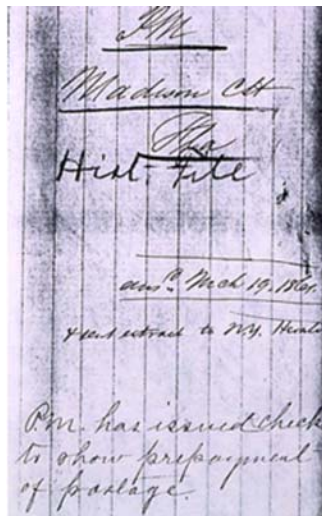 PM
Madison CH
Fla
Hist. File
ansd. Mch 19. 1861.
& sent extract to N.Y. Herald
P.M. has issued check
to show prepayment
of postage.